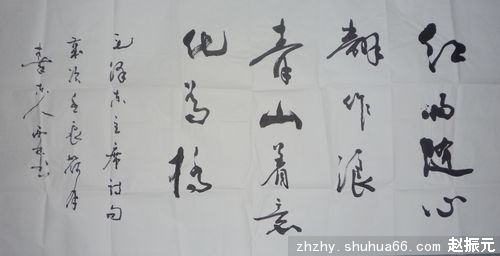 红雨随心
翻作浪
青山着意
化为桥
毛泽东主席诗句
zhzhy.shuhua66.com 赵振元